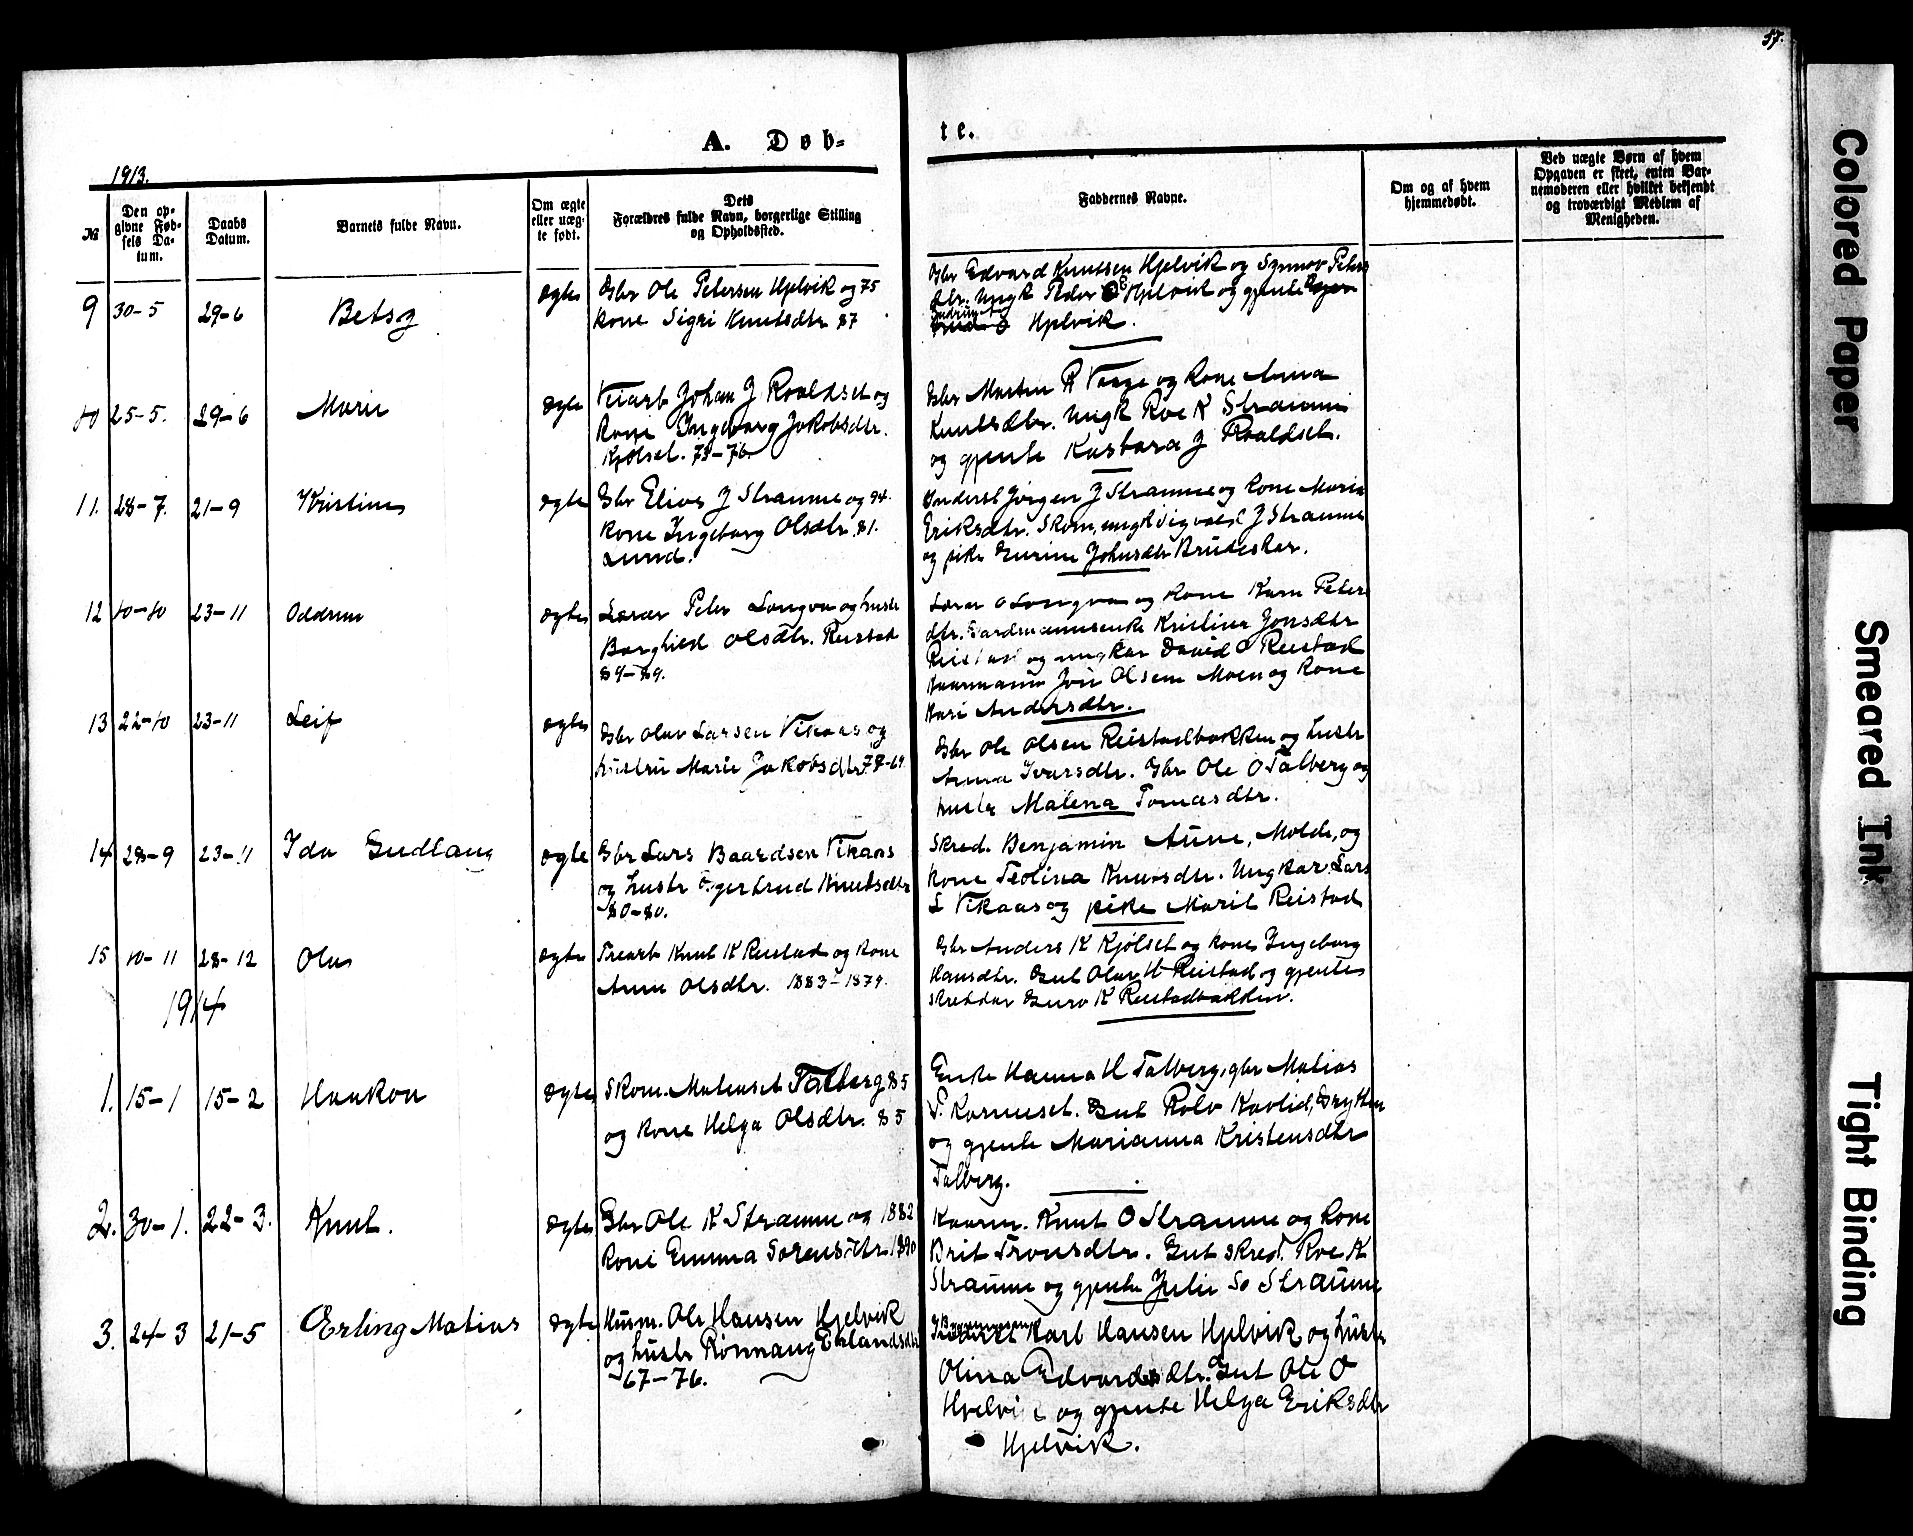 57.
A. Døb-
te.
1913.
№
Den op-
givne Føb-
sels Da-
tum.
Daabs
Datum.
Barnets fulde Navn.
Om ægte
eller uæg-
te født.
Dets
Forældres fulde Navn, borgerlige Stilling
og Opholdssted.
Faddernes Navne.
Om og af hvem
hjemmedøbt.
Ved uægte Børn af hvem
Opgaven er skeet, enten Bar-
nemoderen eller hvilket bekjendt
og troværdigt Medlem af
Menigheden.
9 30-5 29-6 Betsy ægte
Gbr Ole Petersen Hjelvik og 75
kone Sigri Knutsdtr 87
Gbr Edvard Knutsen Hjelvik og Synnøv Peters
dtr. Ungk Peder Hjelvik og gjente
Hjelvik.
10 25-5. 29-6 Marie ægte
Veiarb Johan J Roaldset og
kone Ingeborg Jakobsdtr.
Kjølset. 73-76.
Gbr Martin R Vaage og kone Anna
Knutsdtr. Ungk Roe K Straume
og gjente Kasbara J Roaldset.
11. 28-7. 21-9 Kristine ægte
Gbr Elias J Straume og 74.
kone Ingeborg Olsdtr. 81.
Lund.
Inderst Jørgen J Straume og kone Marie
Eriksdtr. Skom, ungk Sigvald J Straume
og pike Gurine Johnsdtr Brudeskar.
12 10-10 23-11 Oddrun ægte
Lærer Peter Longva og hustr
Borghild Olsdtr. Reistad
84-89.
Lærer O Longva og kone Karn Peters
dtr. Gardmannsenke Kristine Jonsdtr
Reistad og ungkar David O Reistad
Kaarmann Jon Olsen Moen og kone
Kari Andersdtr.
13 22-10 23-11 Leif ægte
Gbr Olav Larsen Vikaas og
hustru Marie Jakobsdtr 78-69
Gbr Ole Olsen Reistadbakken og hustr
Anna Ivarsdtr. Gbr Ole O Talberg og
hustr Malena Tomasdtr.
14 28-9 23-11 Ida Gudlaug ægte
Gbr Lars Baardsen Vikaas
og hustr Gjertrud Knutsdtr
80-80.
Skred. Benjamin Aune, Molde, og
kone Teolina Knutsdtr. Ungkar Lars
L Vikaas og pike Marit Reistad
15 10-11 28-12 Olav ægte
Træarb Knut K Reistad og kone
Anne Olsdtr. 1883-1879.
Gbr Anders K Kjølset og kone Ingeborg
Hansdtr. Gut Olav H Reistad og gjente
skræddar Guro K Reistadbakken.
1914
1. 15-1 15-2 Haakon ægte
Skom. Mateuset Talberg 85
og kone Helga Olsdtr. 85
Enke Hanna H Talberg, gbr Matias
P. Karneset. Gut Rolv Kavlid, Grytten
og gjente Marianna Kristensdtr
Talberg.
2. 30-1. 22-3. Knut. ægte
Gbr Ole K Straume og 1882
kone Emma Sørensdtr 1890
Kaarm. Knut O Straume og kone
Brit Tronsdtr. Gut skred. Roe K
Straume og gjente Julie So Straume
3. 24-3 21-5 Erling Matias ægte
Husm. Ole Hansen Hjelvik
og hustr Rønnaug Erlandsdtr
67-76.
Karl Hansen Hjelvik og hustr
Olina Edvardsdtr. Gut Ole O
Hjelvik og gjente Helga Eriksdtr
Hjelvik.
Colored Paper
Smeared Ink
Tight Binding